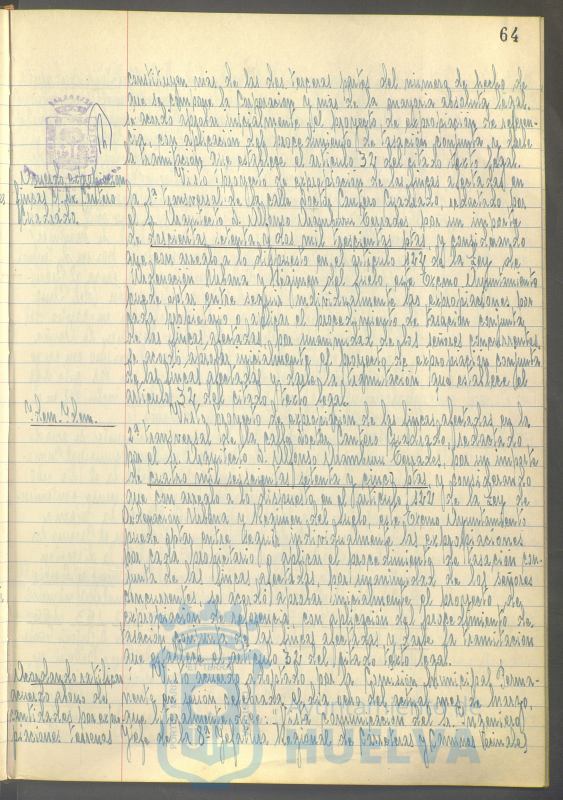 64
constituyen más de las dos terceras partes del número de hecho de
que se compone la Corporación y más de la mayoría absoluta legal,
se acordó aprobar inicialmente el proyecto de expropiación de referen-
cia, con aplicación del procedimiento de tasación conjunta, y darle
la tramitación que establece el artículo 32 del citado texto legal.
Acuerdo expropiación
fincas Dr. Cantero
Cuadrado.
Visto proyecto de expropiación de las fincas afectadas en
la 1ª transversal de la calle Doctor Cantero Cuadrado, redactado por
el Sr. Arquitecto D. Alfonso Aramburu Terrades por un importe
de doscientas setenta y dos mil trescientas ptas, y considerando
que con arreglo a lo dispuesto en el artículo 122 de la Ley de
Ordenación Urbana y Régimen del Suelo, este Excmo Ayuntamiento
puede optar entre seguir individualmente las expropiaciones por
cada propietario o aplicar el procedimiento de tasación conjunta
de las fincas afectadas, por unanimidad de los señores concurrentes,
se acordó aprobar inicialmente el proyecto de expropiación conjunta
de las fincas afectadas y darle la tramitación que establece el
artículo 32 del citado texto legal.
Idem. Idem.
Visto proyecto de expropiación de las fincas afectadas en la
2ª transversal de la calle Doctor Cantero Cuadrado, redactado
por el Sr. Arquitecto D. Alfonso Aramburu Terrades, por un importe
de cuatro mil seiscientas setenta y cinco ptas, y considerando
que con arreglo a lo dispuesto en el artículo 122 de la Ley de
Ordenación Urbana y Régimen del Suelo, este Excmo Ayuntamiento
puede optar entre seguir individualmente las expropiaciones
por cada propietario o aplicar el procedimiento de tasación con-
junta de las fincas afectadas, por unanimidad de los señores
concurrentes se acordó aprobar inicialmente el proyecto de
expropiación de referencia, con aplicación del procedimiento de
tasación conjunta de las fincas afectadas y darle la tramitación
que establece el artículo 32 del citado texto legal.
acuerdo abono de
cantidades por expro
piaciones terrenos
acuerdo adoptado por la Comisión Municipal Perma-
nente en sesión celebrada el día ocho del actual mes de Marzo,
que literalmente dice: "Vista comunicación del Sr. Ingeniero
Jefe de la 8ª Jefatura Regional de Carreteras y Caminos Vecinales
HUELVA